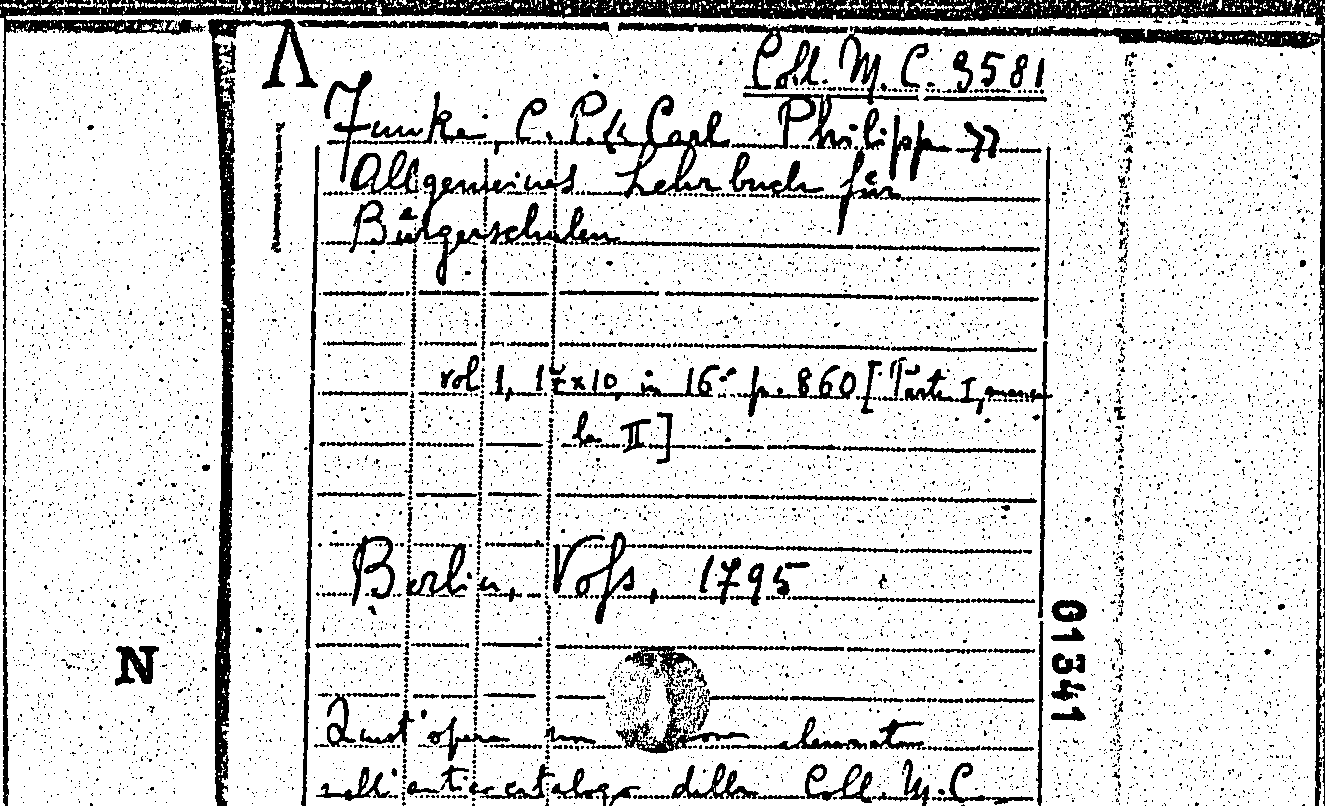 Coll. M. C. 3581
Funke, C. P. << Carl Philipp >>
Allgemeines Lehrbuch für
Bürgerschulen
vol 1, 17x10, in 16° p. 860 [Parte I, manca
la II]
Berlin, Voſs, 1795
01341
N
Quest'opera non elencata
sull'antico catalogo della Coll. M. C